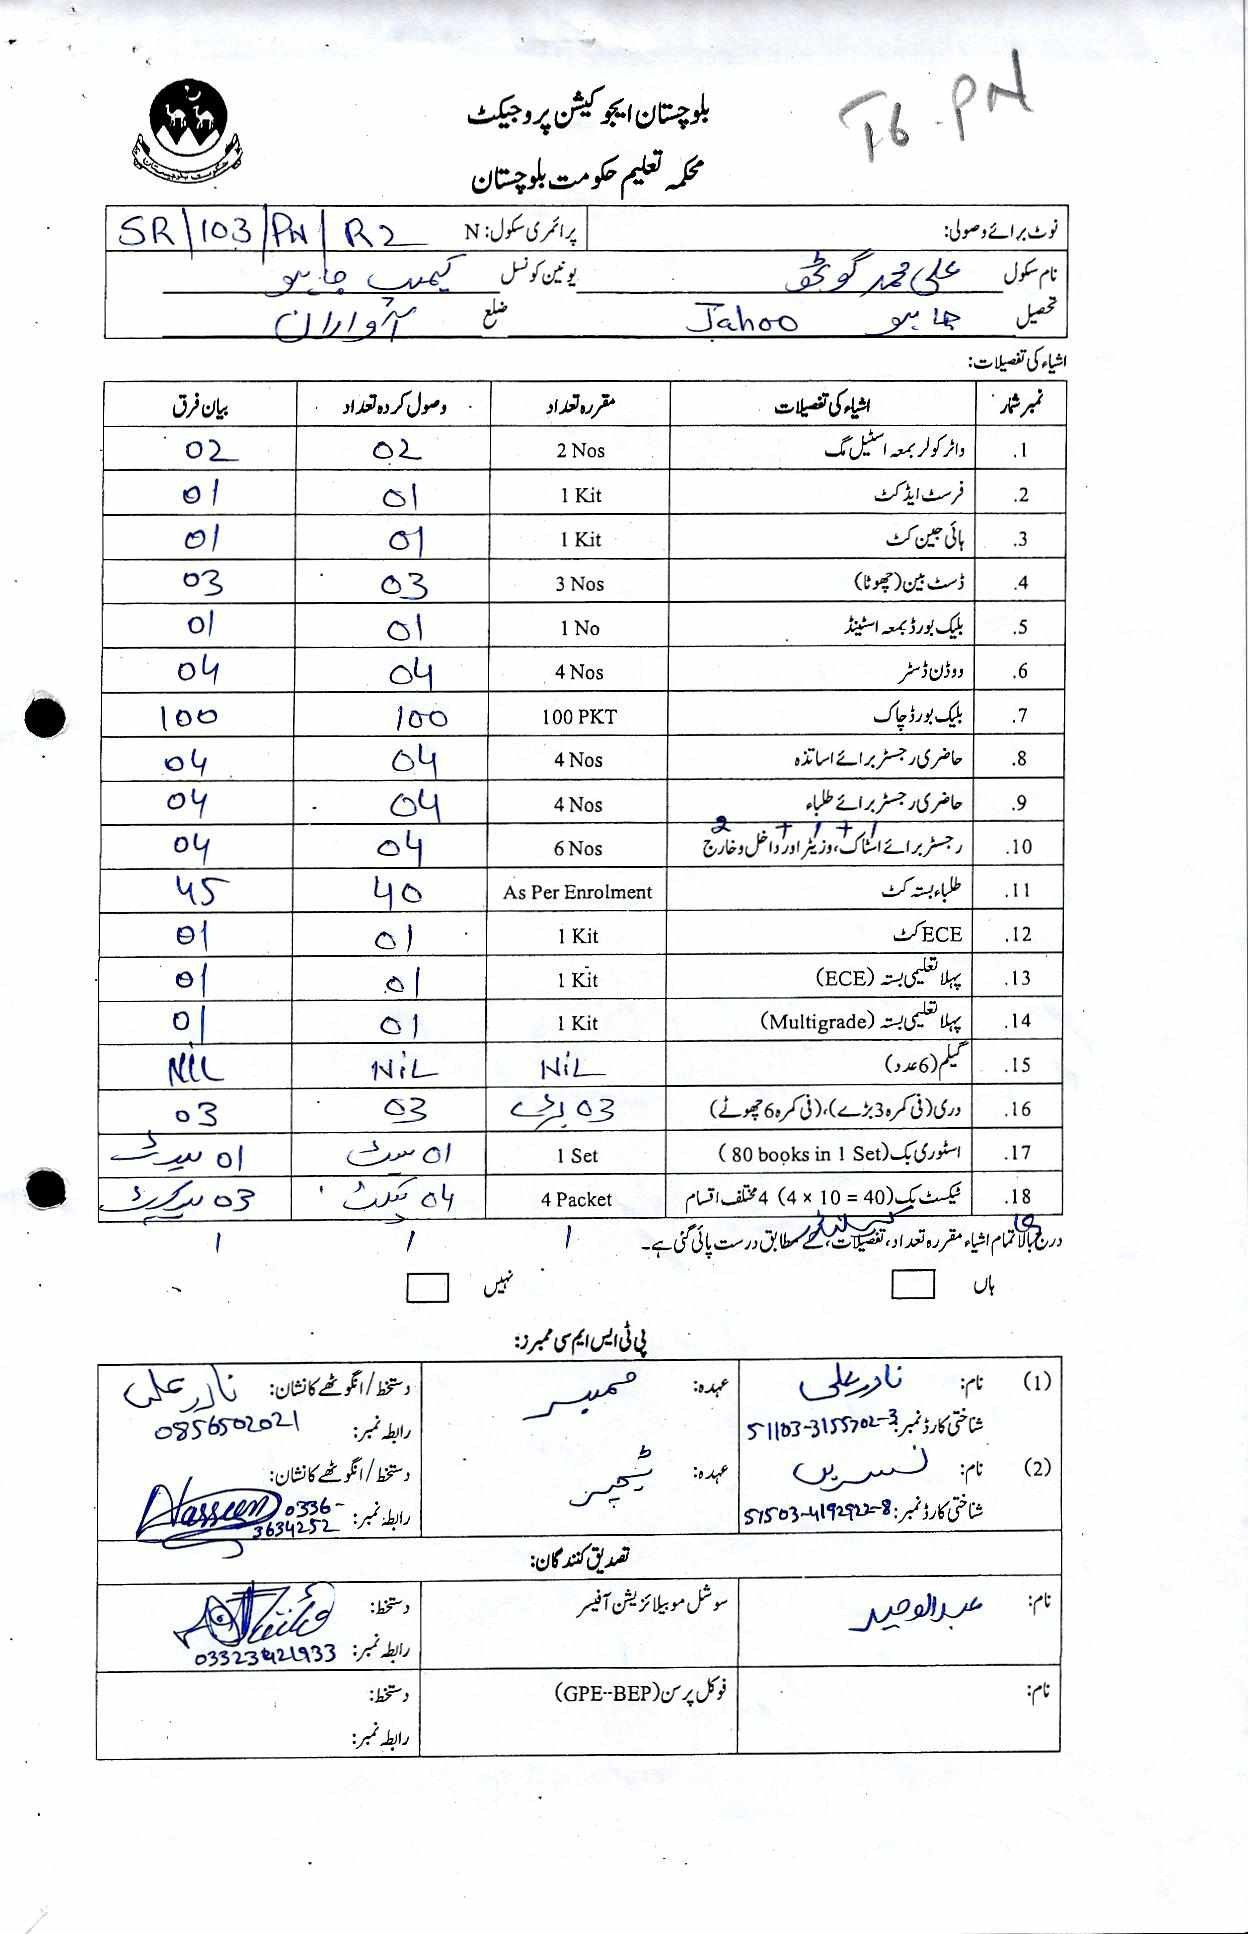 T6-PN
بلوچستان ایجوکیشن پروجیکٹ
محکمہ تعلیم حکومت بلوچستان
حکومت بلوچستان
نوٹ برائے وصولی: پرائمری سکول: N SR/103/PN/R2
نام سکول علی محمد گوٹھ یونین کونسل کیمپ جاہو
تحصیل جاہو Jahoo ضلع آواران
اشیاء کی تفصیلات:
نمبر شمار اشیاء کی تفصیلات مقررہ تعداد وصول کردہ تعداد بیان فرق
1. واٹر کولر بمعہ اسٹیل مگ 2 Nos 02 02
2. فرسٹ ایڈ کٹ 1 Kit 01 01
3. ہائی جین کٹ 1 Kit 01 01
4. ڈسٹ بین (چھوٹا) 3 Nos 03 03
5. بلیک بورڈ بمعہ اسٹینڈ 1 No 01 01
6. ووڈن ڈسٹر 4 Nos 04 04
7. بلیک بورڈ چاک 100 PKT 100 100
8. حاضری رجسٹر برائے اساتذہ 4 Nos 04 04
9. حاضری رجسٹر برائے طلباء 4 Nos 04 04
2 + 1 + 1
10. رجسٹر برائے اسٹاک، وزیٹر اور داخل و خارج 6 Nos 04 04
11. طلباء بستہ کٹ As Per Enrolment 40 45
12. ECE کٹ 1 Kit 01 01
13. پہلا تعلیمی بستہ (ECE) 1 Kit 01 01
14. پہلا تعلیمی بستہ (Multigrade) 1 Kit 01 01
15. گیلم (6 عدد) NiL NiL NiL
16. دری (فی کمرہ 3 بڑے)، (فی کمرہ 6 چھوٹے) 03 بڑے 03 03
17. اسٹوری بک (80 books in 1 Set) 1 Set 01 سیٹ 01 سیٹ
18. ٹیکسٹ بک (4 × 10 = 40) 4 مختلف اقسام 4 Packet 04 پیکٹ 03 پیکٹ
درج بالا تمام اشیاء مقررہ تعداد، تفصیلات، کے مطابق درست پائی گئی ہے۔ 1 1 1
ہاں نہیں
پی ٹی ایس ایم سی ممبرز:
(1) نام: نادر علی عہدہ: ممبر دستخط / انگوٹھے کا نشان: نادر علی
شناختی کارڈ نمبر: 51103-3155702-3 رابطہ نمبر: 0856502021
(2) نام: نسرین عہدہ: ٹیچر دستخط / انگوٹھے کا نشان: Nasreen
شناختی کارڈ نمبر: 51503-4192922-8 رابطہ نمبر: 0336-3634252
تصدیق کنندگان:
نام: عبدالوحید سوشل موبیلائزیشن آفیسر دستخط:
رابطہ نمبر: 03323421933
نام: فوکل پرسن (GPE--BEP) دستخط:
رابطہ نمبر: